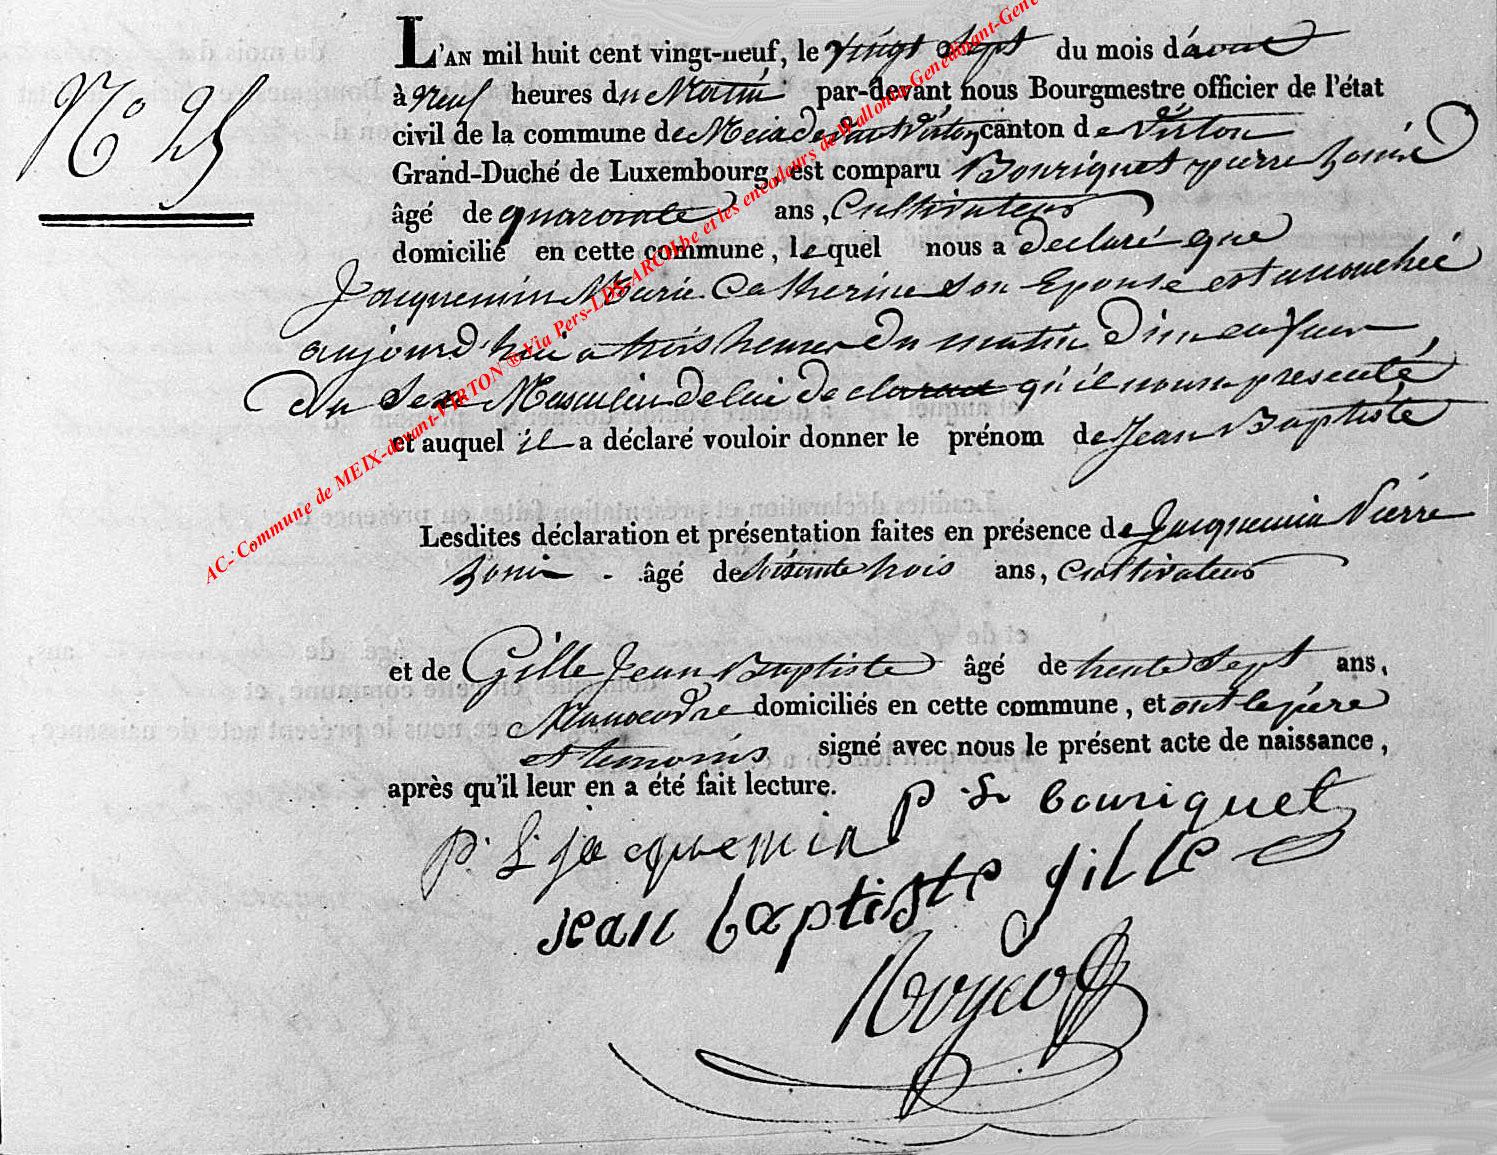 N° 25
L'AN mil huit cent vingt-neuf, le vingt sept du mois d'aout
à neuf heures du Matin par-devant nous Bourgmestre officier de l'état
civil de la commune de Meix devant Virton, canton de Virton
Grand-Duché de Luxembourg, est comparu Bouriquet pierre
âgé de quarante ans, Cultivateur
domicilié en cette commune, lequel nous a declaré que
Jacquemin Marie Catherine son Epouse est accouchée
aujourd'hui a trois heures du matin D'un enfant
du Sexe Masculin de lui declarant qu'il nous a presenté,
et auquel il a déclaré vouloir donner le prénom de Jean Baptiste
Lesdites déclaration et présentation faites en présence de Jacquemin Pierre
âgé de trois ans, Cultivateur
et de Gille Jean Baptiste âgé de trente Sept ans,
Manoeuvre domiciliés en cette commune, et ont le père
et temoins signé avec nous le présent acte de naissance,
après qu'il leur en a été fait lecture.
p. bouriquet
p. j. jacquemin
jean baptiste gille
AC- Commune de MEIX-devant-VIRTON ® Via Pers-LDS-ARCH.be et les encodeurs de Wallonia-Genedinant-Gene